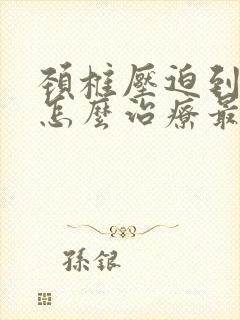 頚椎壓迫到
怎麼治療最
孫銀